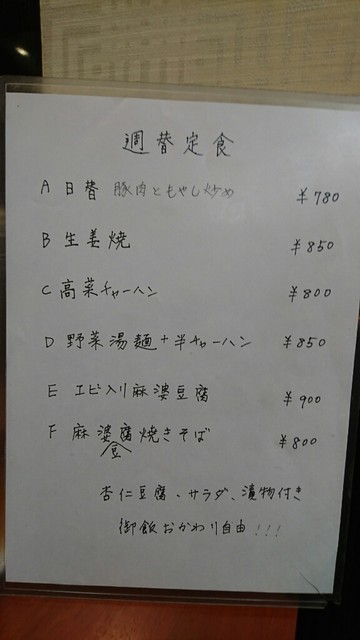 週替定食
A 日替 豚肉ともやし炒め ¥780
B 生姜焼 ¥850
C 高菜チャーハン ¥800
D 野菜湯麺+半チャーハン ¥850
E エビ入り麻婆豆腐 ¥900
F 麻婆豆腐焼きそば ¥800
杏仁豆腐、サラダ、漬物付き
御飯おかわり自由!!!